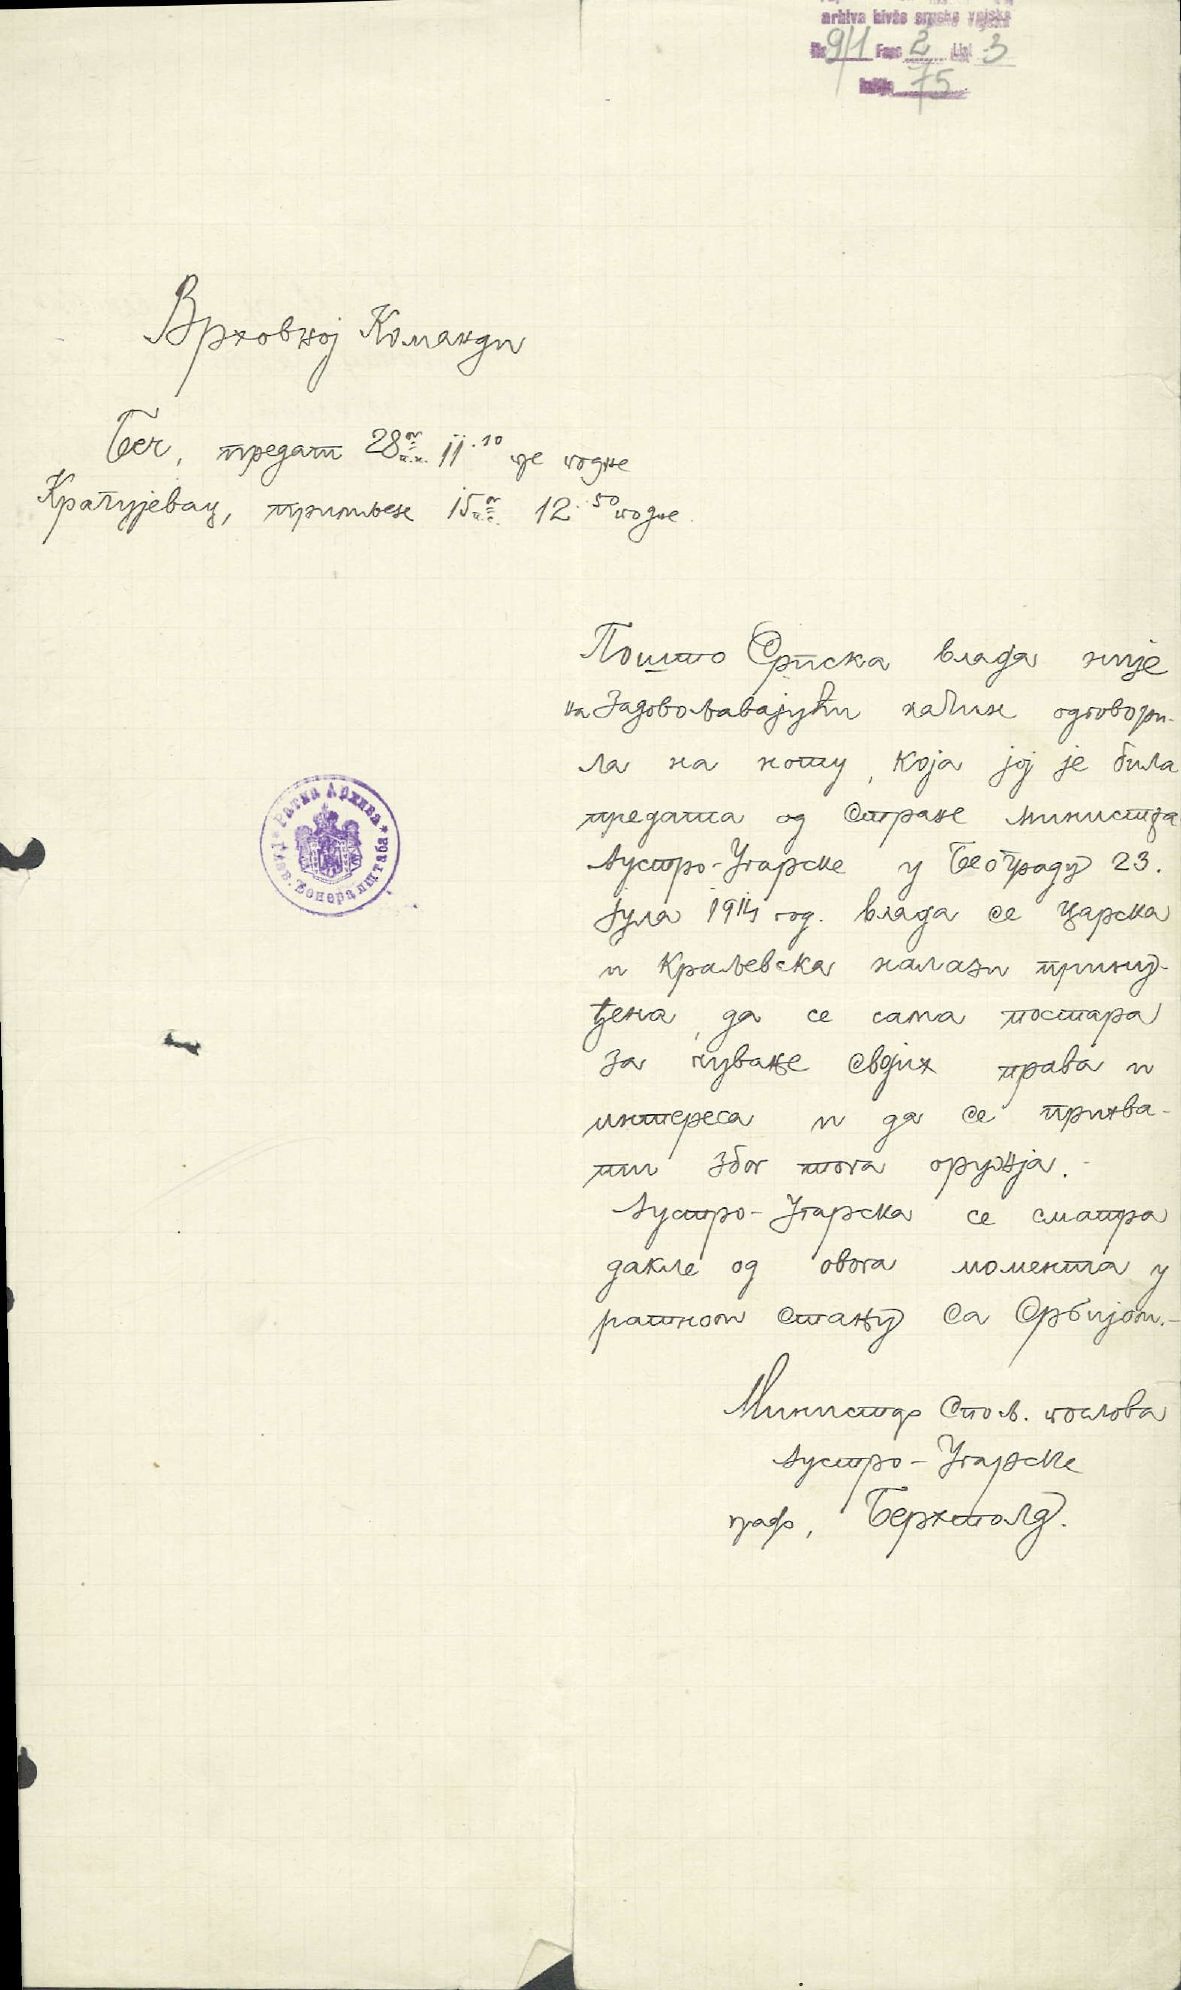 arhiva bivše srpske vojske
9/1 Fasc 2 List 3
75
Врховној Команди
Беч, предат 28ог н.к. 11.10 пре подне
Крагујевац, примљен 15ог 12.50 подне.
Пошто Српска влада није
на задовољавајући начин одговори-
ла на ноту, која јој је била
предата од стране министра
Аустро-Угарске у Београду 23.
Јула 1914 год. влада се царска
и Краљевска налази прину-
ђена, да се сама постара
за чување својих права и
интереса и да се прихва-
ти због тога оружја.-
Аустро-Угарска се сматра
дакле од овога момента у
ратном стању са Србијом.-
Министар Спољ. послова
Аустро-Угарске
граф, Берхтолд.
* Ратна Архива *
Глав. Ђенералштаба